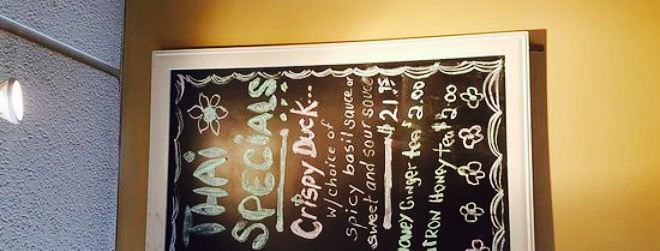 THAI
SPECIALS
CRISPY DUCK...
w/choice of
spicy basil sauce or
sweet and sour sauce
$21.95
Honey Ginger tea $2.00
CITRON Honey tea $2.00